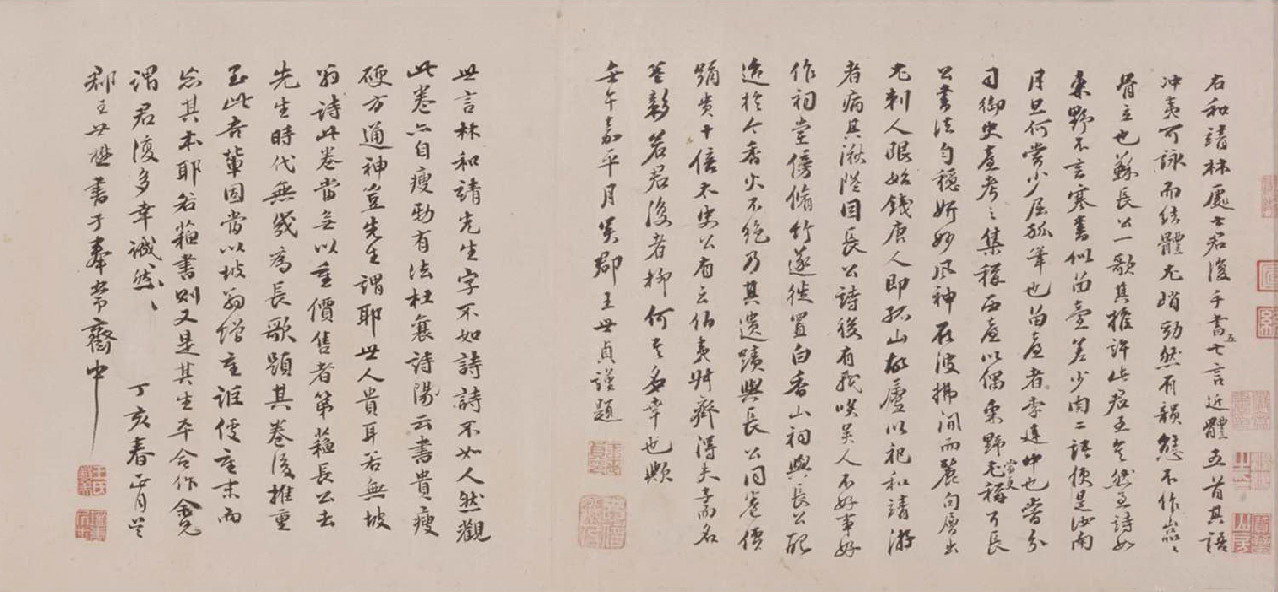 右和靖林處士君復手書五七言近體五首其語
冲夷可詠而結體尤峭勁然有韻態不作嵓嵓
骨立也蘇長公一歌其推許此君至矣然至詩如
東野不言寒書似留臺差少肉二語便是汝南
月旦何嘗少屈狐筆也留臺者李建中也嘗分
司御史臺考之集稱西臺以偶東野老稱耳長
公書法勻穩妍妙風神在波拂間而麗句層出
尤刺人眼始錢唐人即孤山故廬以祀和靖游
者病其湫隘因長公詩後有我笑吴人不好事好
作祠堂傍脩竹遂徙置白香山祠與長公配
迨於今香火不絕乃其遺蹟與長公同卷價
踊貴十倍太史公有云伯夷叔齊得夫子而名
益彰若君復者抑何其多幸也歟
壬午嘉平月吴郡王世貞謹題
世言林和靖先生字不如詩詩不如人然觀
此卷六自瘦勁有法杜襄詩陽云書貴瘦
硬方通神豈先生謂耶世人貴耳若無坡
翁詩此卷當無以重價售者第蘇長公去
先生時代無幾為長歌題其卷後推重
至此吾輩因當以坡翁增重誰使重末而
忘其本耶若蘇書則又是其生平合作
謂君復多幸誠然誠然 丁亥春正月吴
郡王世懋書于奉常齋中